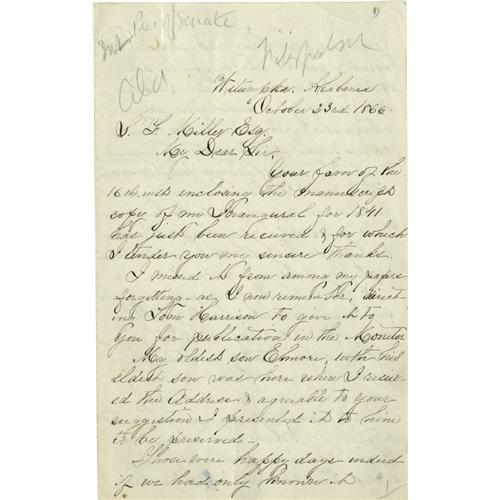 Pres of Senate
Fitzpatrick
Wetumpka. Alabama
October 23rd 1866
S. F. Miller Esq.
My Dear Sir.
Your favor of the
16th inst enclosing the manuscript
copy of my Inaugural for 1841
has just been received & for which
I tender you my sincere thanks.
I missed it from among my papers
forgetting as I now remember, direct
ing Tom Harrison to give it to
you for publication in the Monitor
My oldest son Elmore, with his
eldest son was here when I receiv
ed the Address & agreeable to your
suggestion I presented it to him
to be preserved _
Those were happy days indeed
if we had only known it